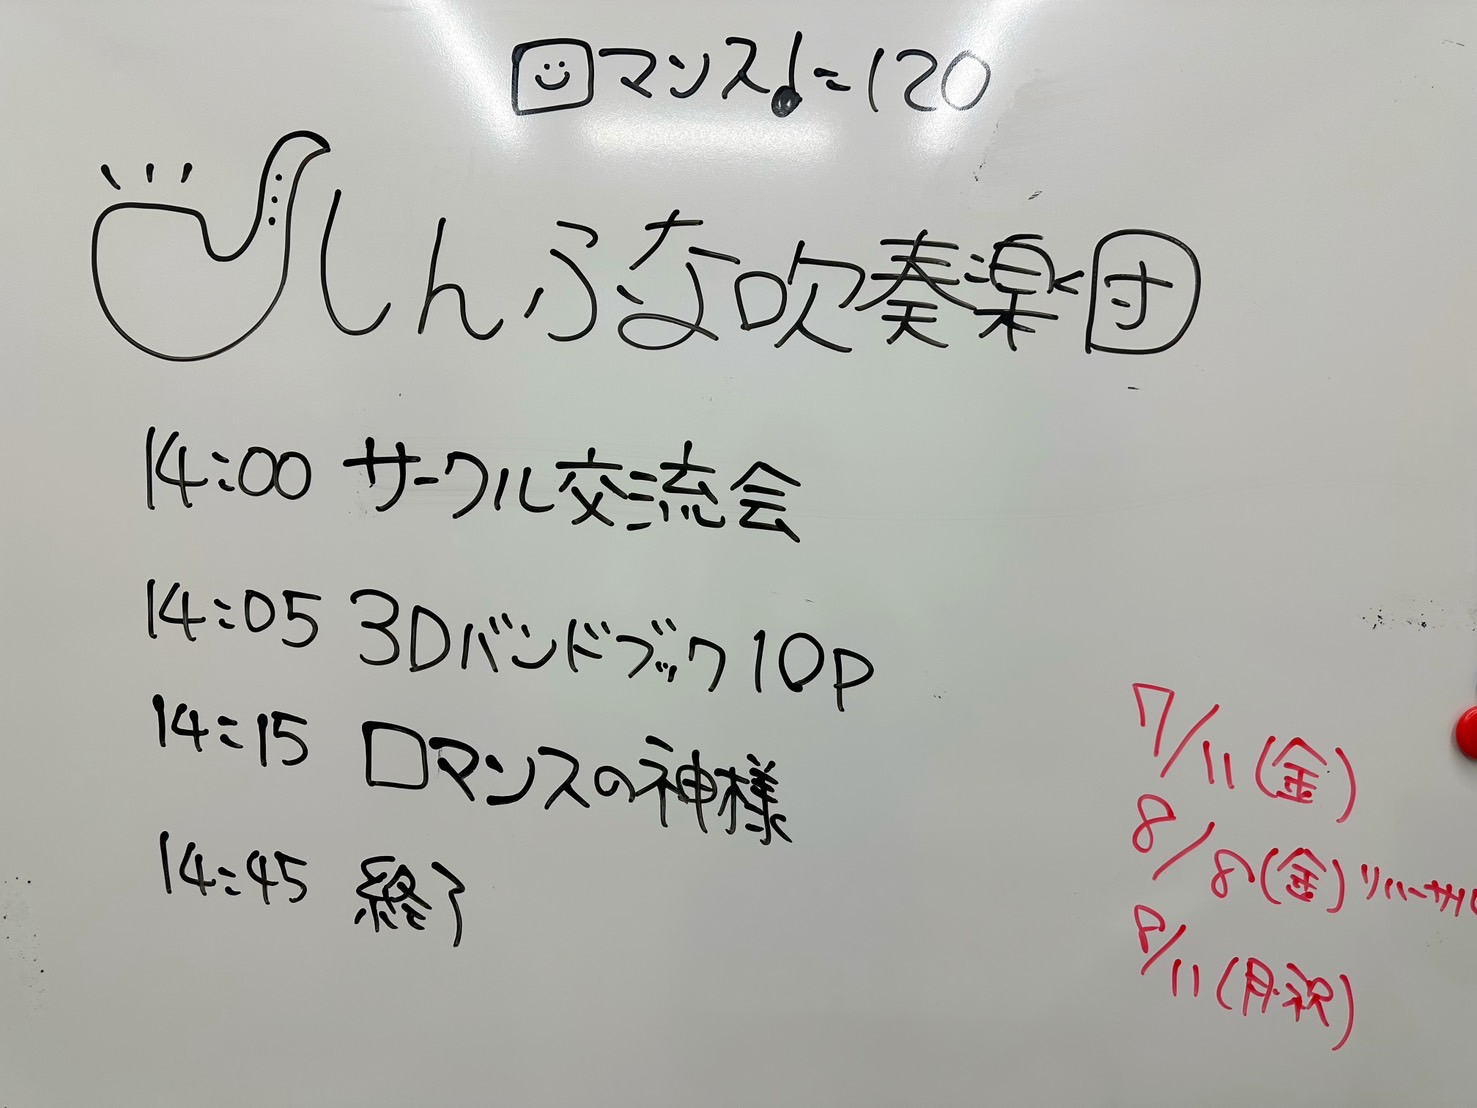 ロマンス♩=120
しんふな吹奏楽団
14:00 サークル交流会
14:05 3Dバンドブック 10p
14:15 ロマンスの神様
14:45 終了
7/11(金)
8/8(金)リハーサル
8/11(月・祝)